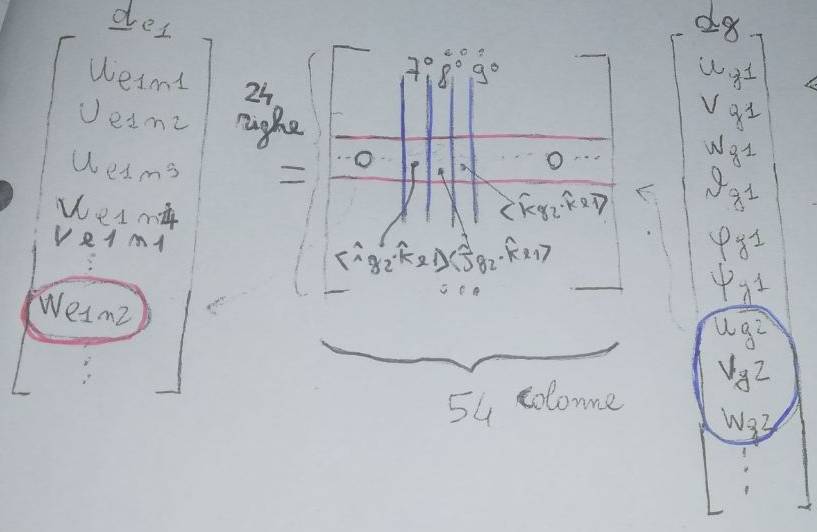 de1
ue1n1
ue1n2
ue1n3
ue1n4
ve1n1
⋮
we1n2
⋮
24
righe
=
7° 8° 9°
... 0 0 ...
<k̂g2·k̂e1>
<îg2·k̂e1> <ĵg2·k̂e1>
...
54 colonne
dg
ug1
vg1
wg1
ϑg1
φg1
ψg1
ug2
vg2
wg2
⋮